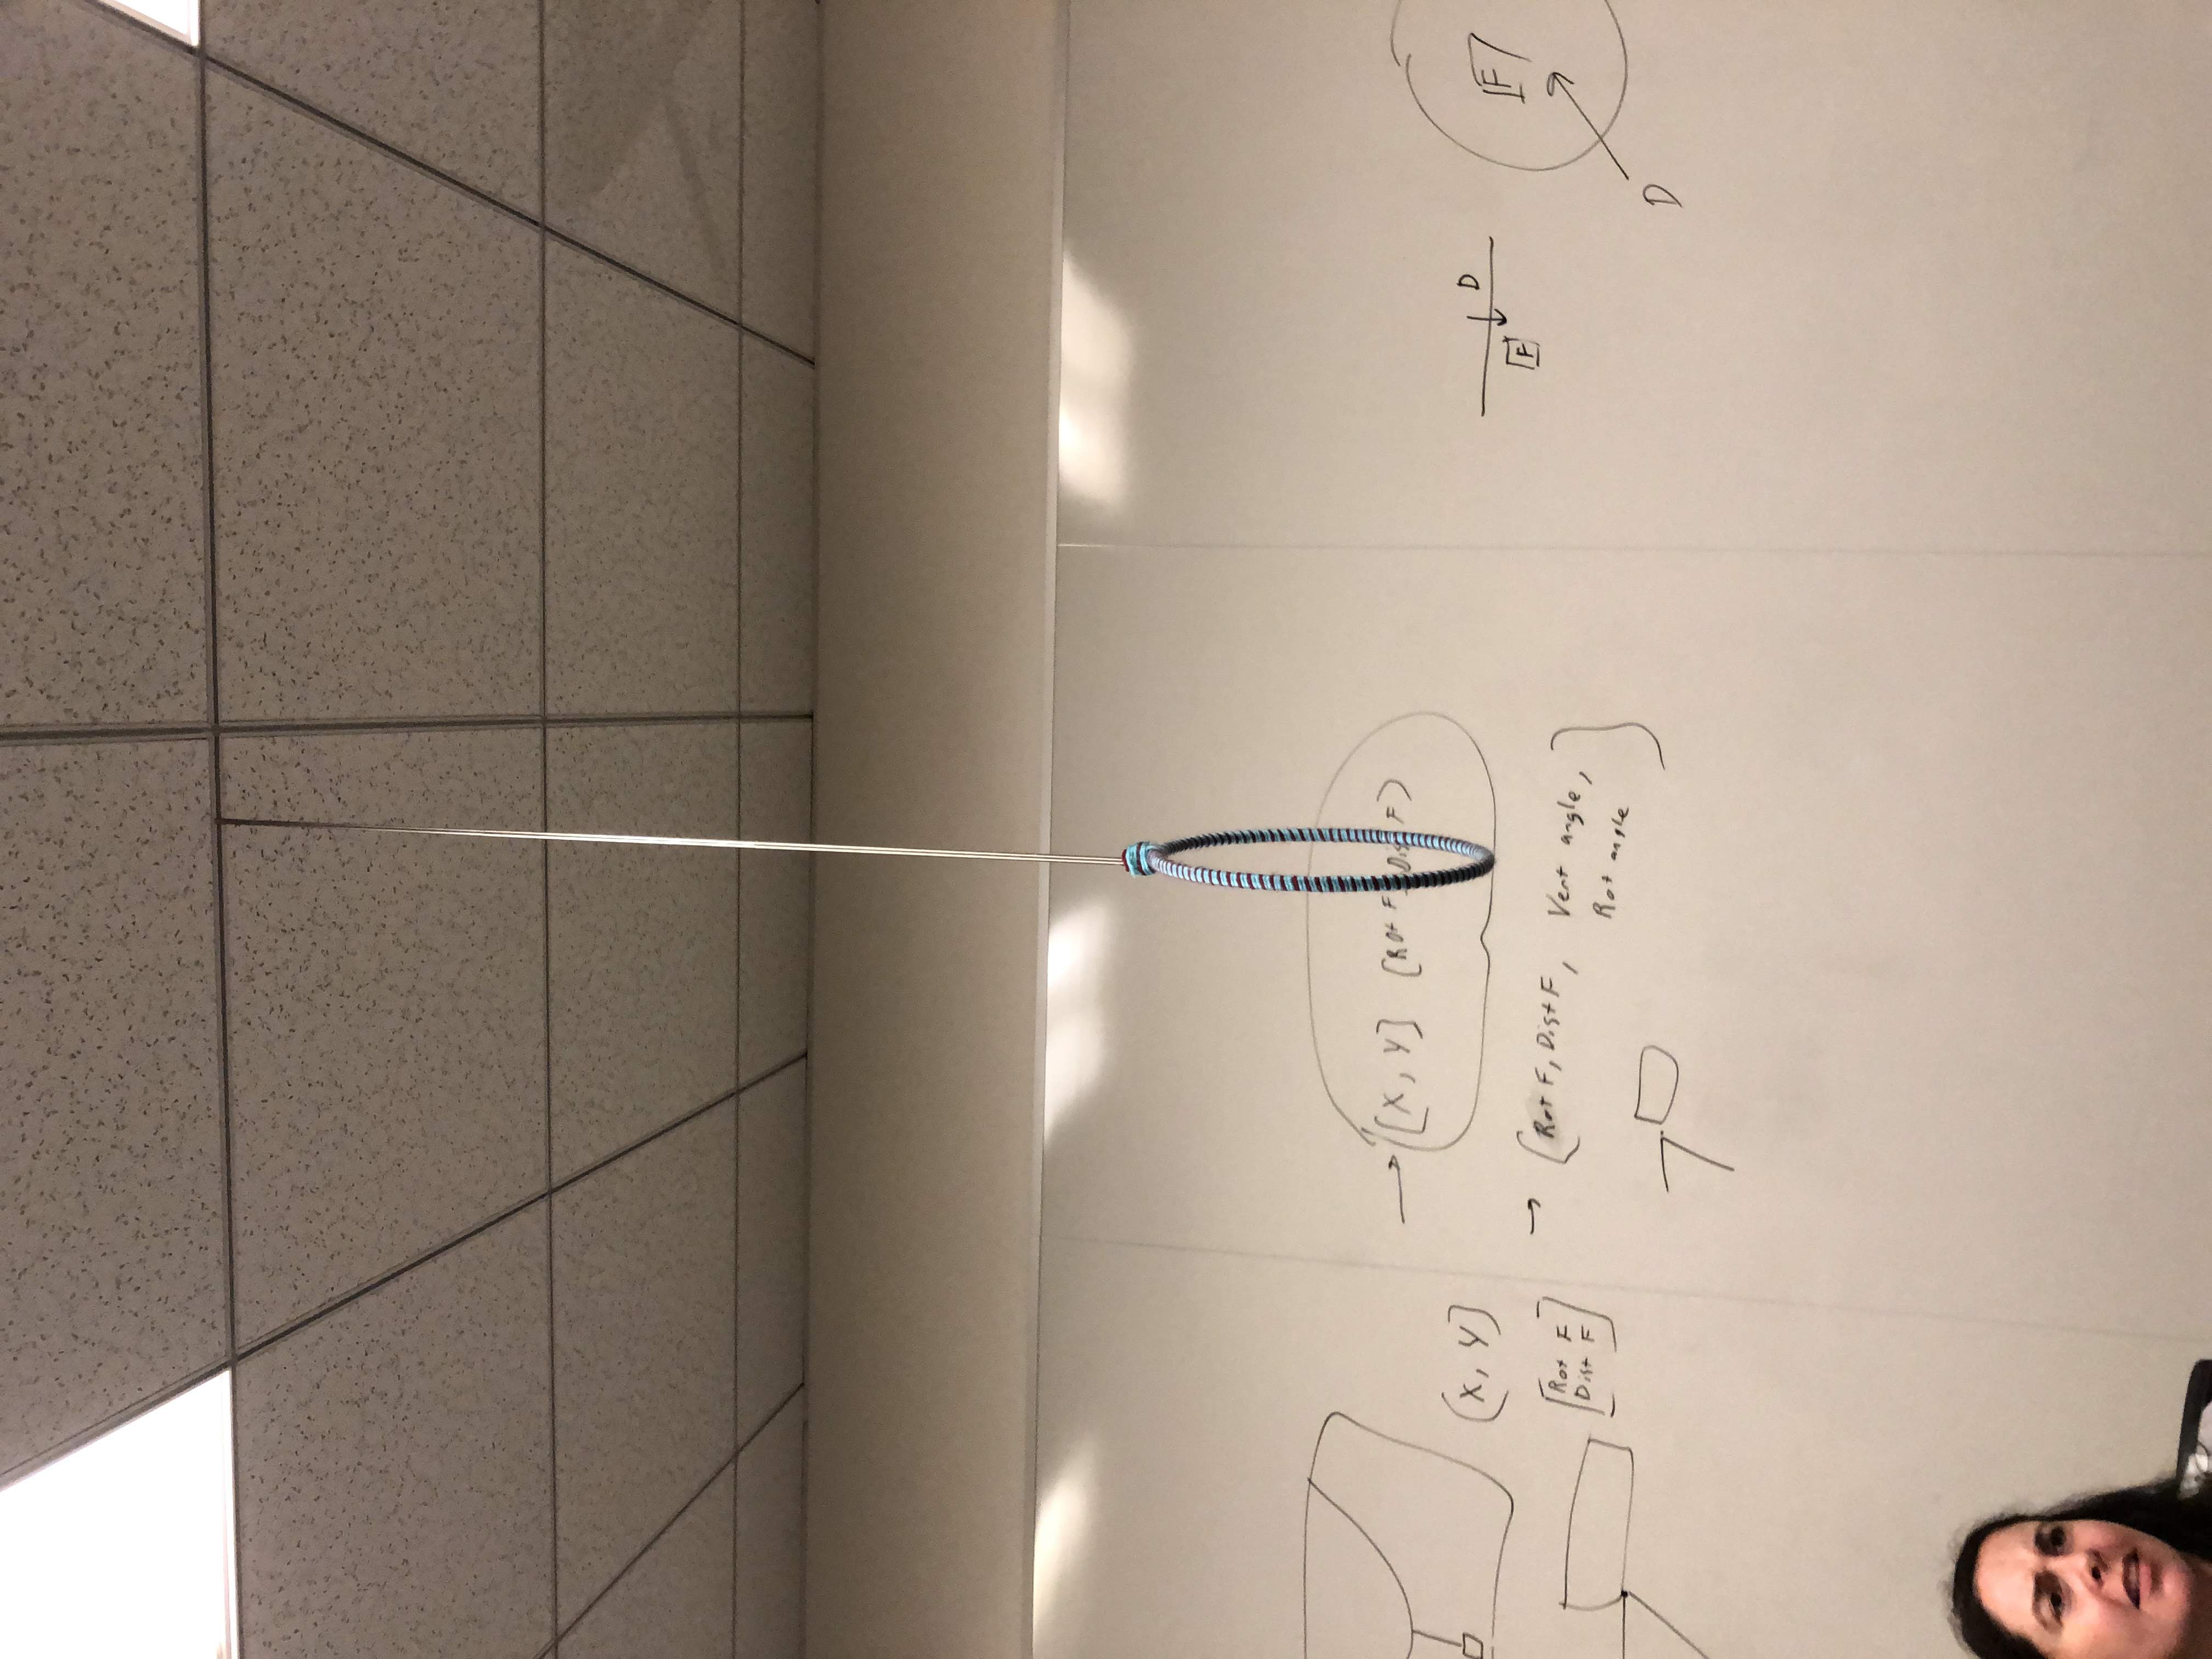 (X, Y]
[Rot F
Dist F]
→ [X, Y] [Rot F, Dist F)
→ [Rot F, Dist F, Vert angle,
Rot angle]
D
F
F
D